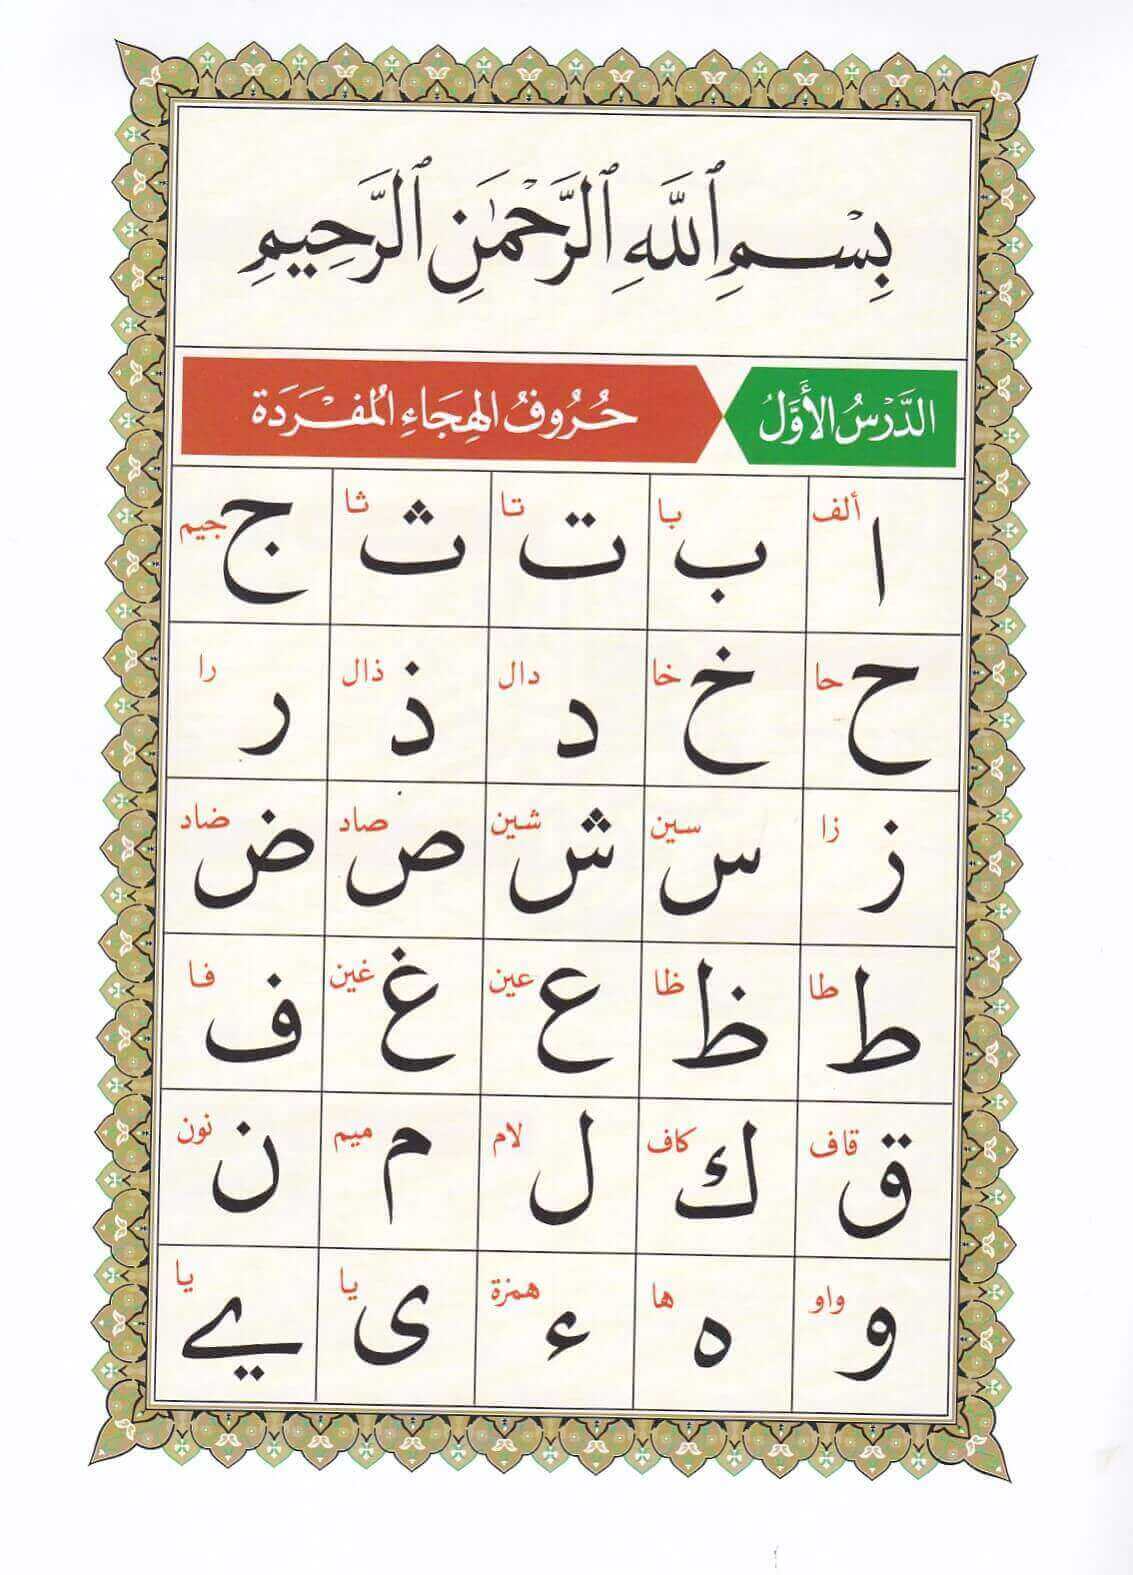 بِسْمِ ٱللَّهِ ٱلرَّحْمَٰنِ ٱلرَّحِيمِ
الدَّرْسُ الأَوَّلُ حُرُوفُ الهِجَاءِ المُفْرَدَة
ا ألف ب با ت تا ث ثا ج جيم
ح حا خ خا د دال ذ ذال ر را
ز زا س سين ش شين ص صاد ض ضاد
ط طا ظ ظا ع عين غ غين ف فا
ق قاف ك كاف ل لام م ميم ن نون
و واو ه ها ء همزة ى يا ے يا